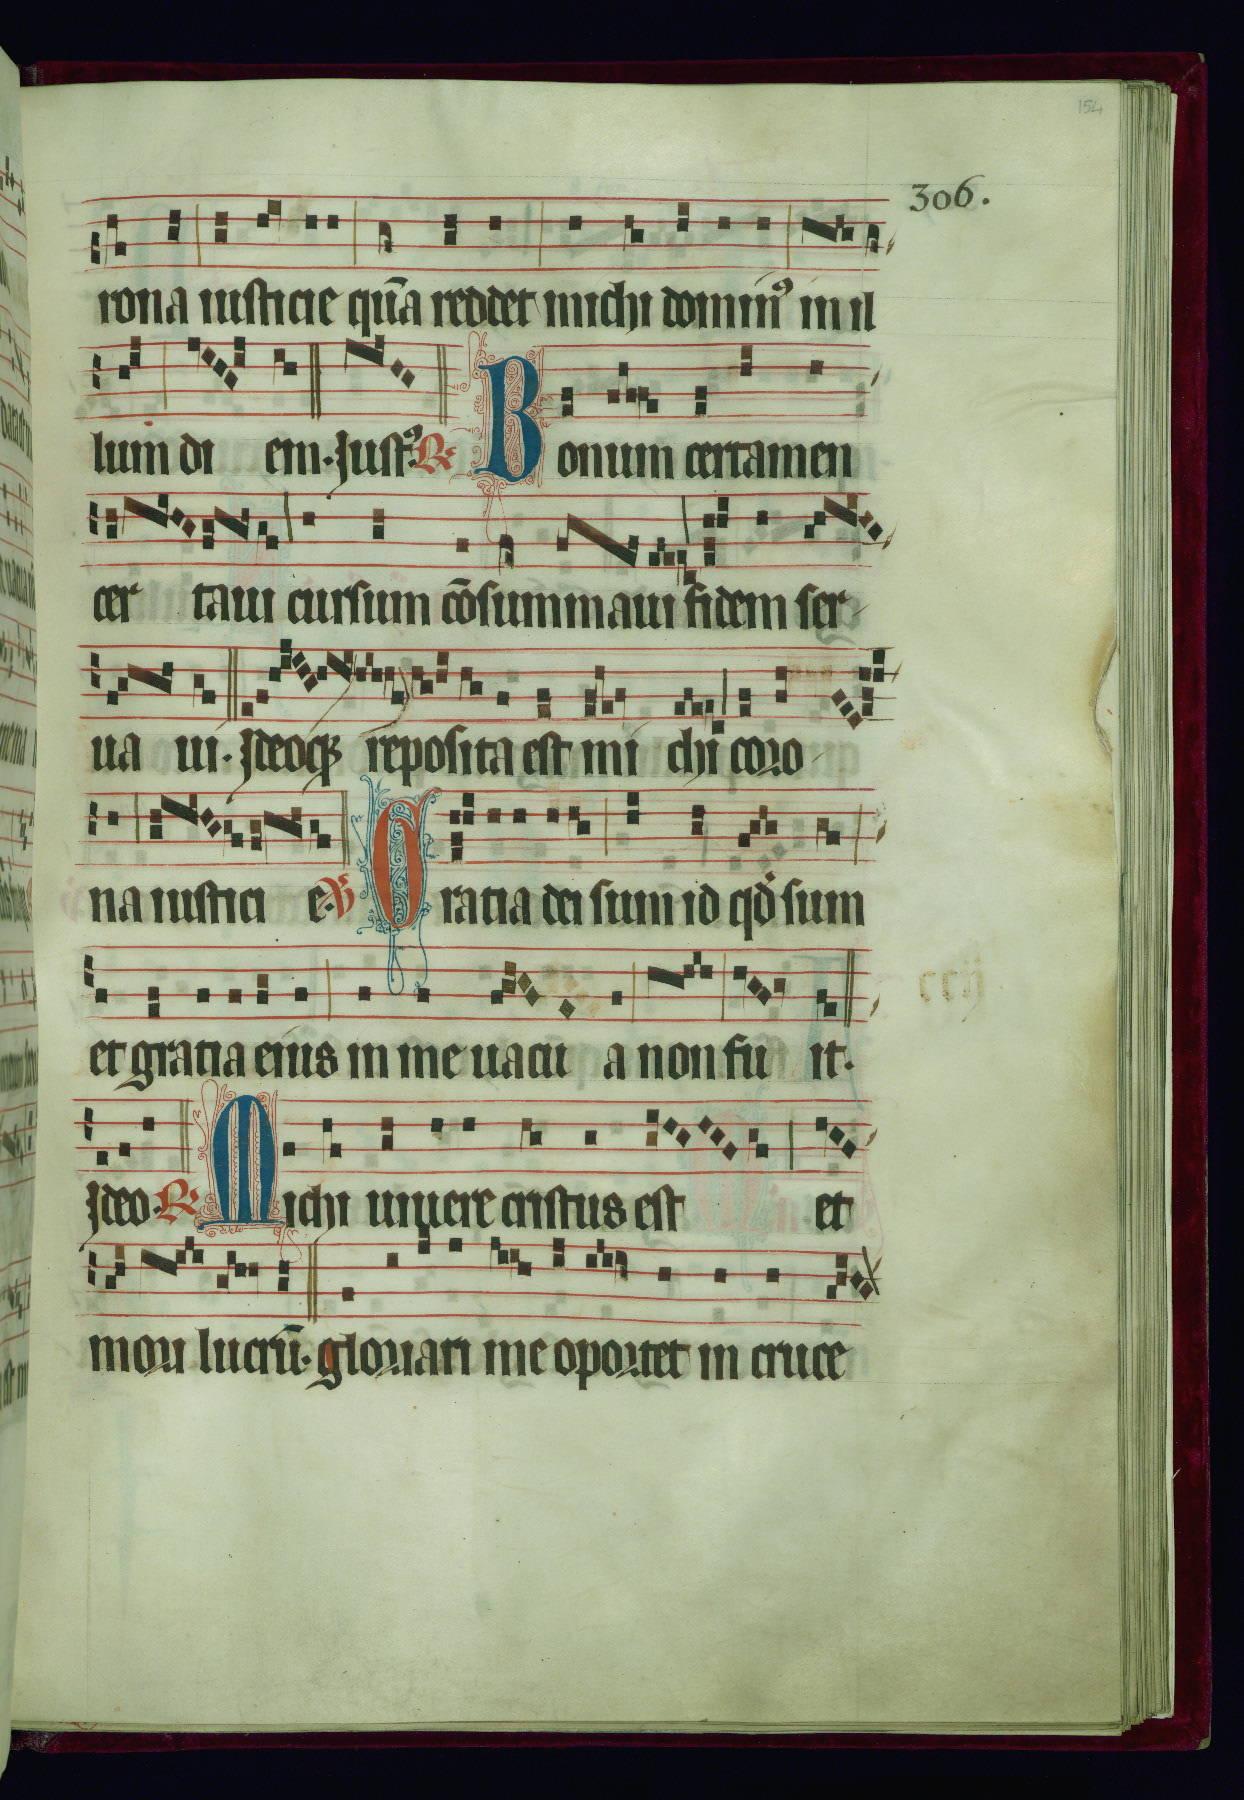 154
306.
rona iusticie qūa reddet michi dominꝰ in il
lum di em. Justꝰ ℟. Bonum certamen
cer taui cursum cōsummaui fidem ser-
ua ui. Ideoqꝫ reposita est mi chi coro-
na iustici e. ℣. Gratia dei sum id qđ sum
et gratia eius in me uacu a non fu it.
Ideo. ℟. Michi uiuere cristus est et
mori lucrū. gloriari me oportet in cruce